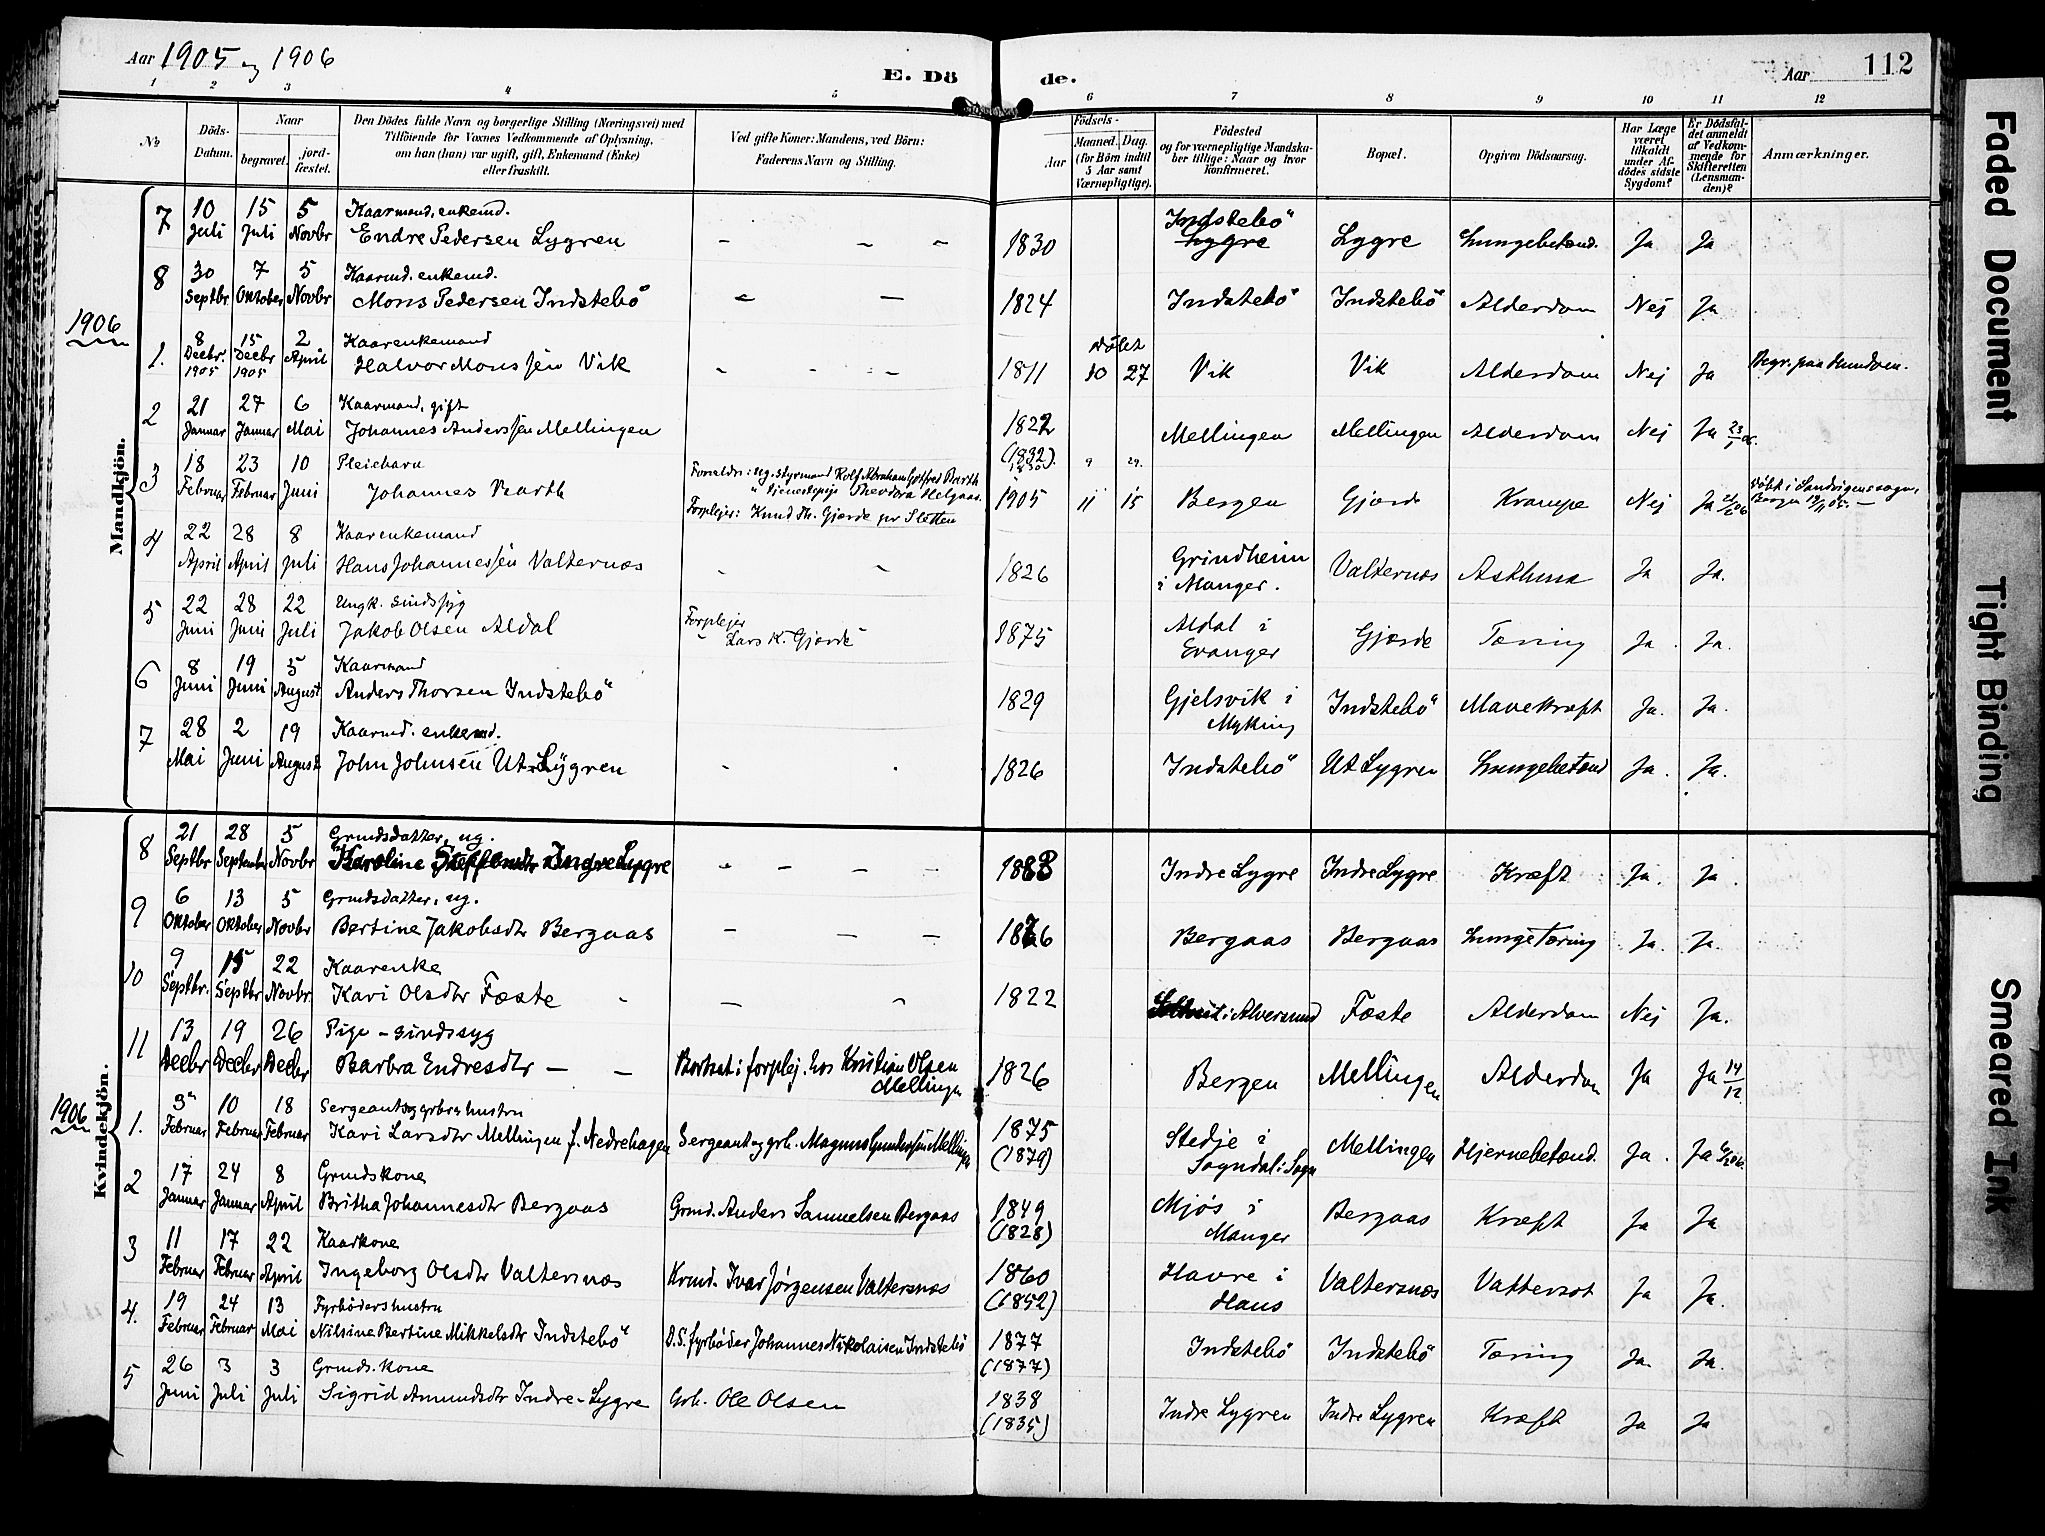 Aar 1905 og 1906
E. Dö de.
Aar 112
1 2 3 4 5 6 7 8 9 10 11 12
No
Döds-Datum.
Naar
begravet.
jord-fæstet.
Den Dödes fulde Navn og borgerlige Stilling (Næringsvei) med
Tilföiende for Voxnes Vedkommende af Oplysning,
om han (hun) var ugift, gift, Enkemand (Enke)
eller fraskilt.
Ved gifte Koner: Mandens, ved Börn:
Faderens Navn og Stilling.
Födsels-
Aar
Maaned. Dag.
(for Börn indtil
5 Aar samt
Værnepligtige).
Födested
og for værnepligtige Mandska-
ber tillige: Naar og hvor
konfirmeret.
Bopæl.
Opgiven Dödsaarsag.
Har Læge
været
tilkaldt
under Af-
dödes sidste
Sygdom?
Er Dödsfal-
det anmeldt
af Vedkom-
mende for
Skifteretten
(Lensman-
den)?
Anmærkninger.
Mandkjön.
7 10 Juli 15 Juli 5 Novbr Kaarmand, enkemd.
Endre Pedersen Lygren - - - 1830 Indstebö Lygre Lygre Lungebetænd. Ja Ja
8 30 Septbr 7 Oktober 5 Novbr Kaarmd. enkemd.
Mons Pedersen Indstebö - - 1824 Indstebö Indstebö Alderdom Nej Ja
1906
1. 8 Decbr. 1905 15 Decbr 1905 2 April Kaarenkemand
Halvor Monssen Vik - - - - 1811 Döbt 10 27 Vik Vik Alderdom Nej Ja Begr. paa Hundven.
2 21 Januar 27 Januar 6 Mai Kaarmand, gift
Johannes Anderssen Mellingen 1822 (1832). Mellingen Mellingen Alderdom Nej Ja 23/1 06.
3 18 Februar 23 Februar 10 Juni Pleiebarn
Johannes Barth
Forældre: ug. styrmand Rolf Abraham Gotfred Barth
" tjenestepige Theodora Helgaas.
Forplejer: Knud Th. Gjærde pr Sletten
9 29.
1905 11 15 Bergen Gjærde Krampe Nej Ja Döbt i Sandvigens sogn,
Bergen
4 22 April 28 April 8 Juli Kaarenkemand
Hans Johannessen Valternæs - - 1826 Grindheim i Manger. Valternæs Asthma Ja Ja.
5 22 Juni 28 Juni 22 Juli Ungk. sindssyg
Jakob Olsen Aldal Forplejer - Lars K. Gjærde 1875 Aldal i Evanger Gjærde Tæring Ja. Ja.
6 8 Juni 19 Juni 5 August Kaarmand
Anders Thorsen Indstebö 1829 Gjelsvik i Myking Indstebö Mavekræft Ja. Ja.
7 28 Mai 2 Juni 19 August Kaarmd. enkemd.
John Johnsen Ut-Lygren - - 1826 Indstebö Ut Lygren Lungebetænd Ja. Ja.
Kvindekjön.
8 21 Septbr 28 Septembr 5 Novbr Grmdsdatter, ug.
Karoline Steffensdtr Indre Lygre - - - - 1883 Indre Lygre Indre Lygre Kræft Ja. Ja.
9 6 Oktober 13 Oktober 5 Novbr Grmdsdatter, ug.
Bertine Jakobsdtr Bergaas - - - 1876 Bergaas Bergaas Lungetæring Ja. Ja.
10 9 Septbr. 15 Septbr 22 Novbr. Kaarenke
Kari Olsdtr Fæste - - - 1822 i Alversund Fæste Alderdom Nej Ja.
11 13 Decbr 19 Decbr 26 Decbr Pige - sindssyg
Barbra Endresdtr - - Bortsat i forplej. hos Kristian Olsen Mellingen 1826 Bergen Mellingen Alderdom Ja Ja 14/12
1906
1. 3 Februar 10 Februar 18 Februar Sergeant og grbrs hustru
Kari Larsdtr Mellingen f. Nedrehagen Sergeant og grb. Magnus Gundersen Mellingen 1875 (1879) Stedje i Sogndal i Sogn Mellingen Hjernebetænd. Ja. Ja 6/2 06.
2 17 Januar 24 Januar 8 April Grmdskone
Britha Johannesdtr Bergaas Grmd. Anders Samuelsen Bergaas 1849 (1828) Mjös i Manger Bergaas Kræft Ja Ja
3 11 Februar 17 Februar 22 April Kaarkone
Ingeborg Olsdtr Valtersnæs Krmd. Ivar Jørgensen Valtersnæs 1860 (1852) Havre i Haus Valtersnæs Vattersot Ja Ja.
4. 19 Februar 24 Februar 13 Mai Fyrböders hustru
Nilsine Bertine Mikkelsdtr Indstebö D.S. fyrböder Johannes Nikolaisen Indstebö 1877 (1877) Indstebö Indstebö Tæring Ja. Ja.
5 26 Juni 3 Juli 3 Juli Grmds. kone
Sigrid Amundsdtr Indre-Lygre Grb. Ole Olsen 1838 (1835) Indre Lygren Indre Lygren Kræft Ja Ja
Faded Document
Tight Binding
Smeared Ink